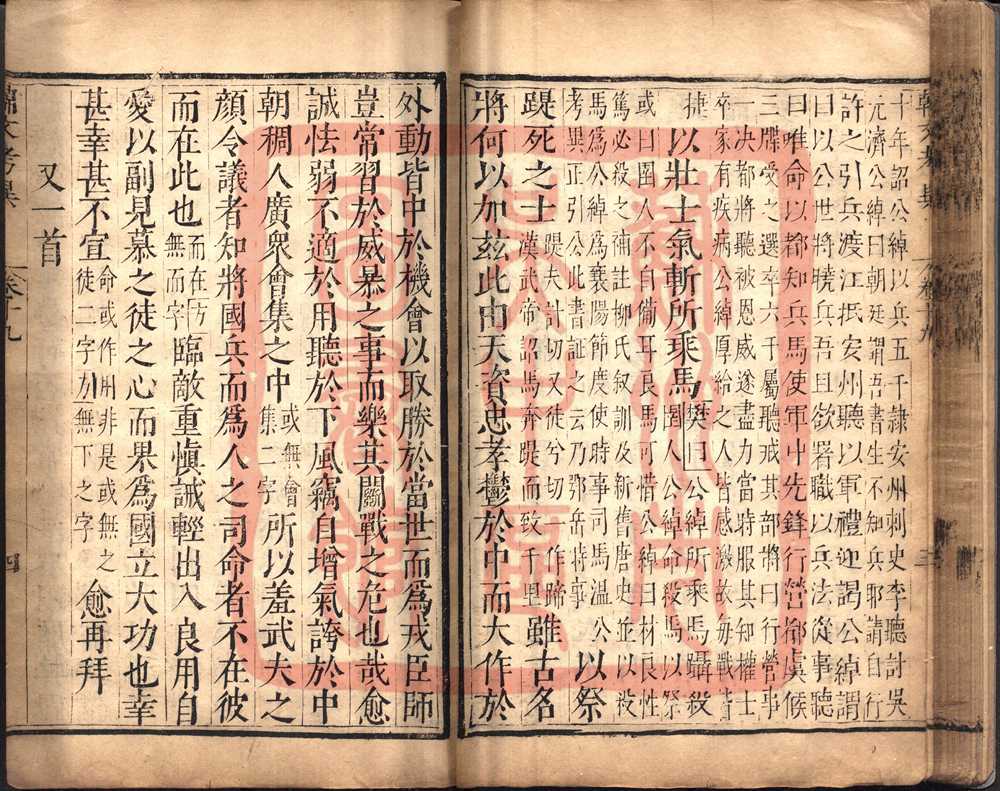 十年詔公綽以兵五千隸安州刺史李聽計吳
元濟公綽曰朝廷謂吾書生不知兵耶請自行
許之引兵渡江抵安州聽以軍禮迎謁公綽謂
曰以公世將曉兵吾且欲署職以兵法從事聽
曰唯命以都知兵馬使軍中先鋒行營都虞候
三牒受之選卒六千屬聽戒其部將曰行營事
一决都將聽被恩威遂盡力當時服其知權士
卒家有疾病公綽厚給之人皆感激故每戰皆
捷以壯士氣斬所乘馬樊曰公綽所乘馬蹋殺
圉人公綽命殺馬以祭
或曰圉人不自備耳良馬可惜公綽曰材良性
篤必殺之補註柳氏叙訓及新舊唐史並以殺
馬爲公綽爲襄陽節度使時事司馬温公
考異正引公此書証之云乃鄂岳時事以祭
踶死之士踶夫計切又徒兮切一作蹄
漢武帝詔馬奔踶而致千里雖古名
將何以加兹此由天資忠孝鬱於中而大作於
外動皆中於機會以取勝於當世而爲戎臣師
豈常習於威暴之事而樂其鬭戰之危也哉愈
誠怯弱不適於用聽於下風竊自增氣誇於中
朝稠人廣衆會集之中或無會
集二字所以羞武夫之
顔令議者知將國兵而爲人之司命者不在彼
而在此也而在方
無而字臨敵重慎誡輕出入良用自
愛以副見慕之徒之心而果爲國立大功也幸
甚幸甚不宣命或作用非是或無之
徒二字方無下之字愈再拜
又一首
韓文考異
卷十九
四